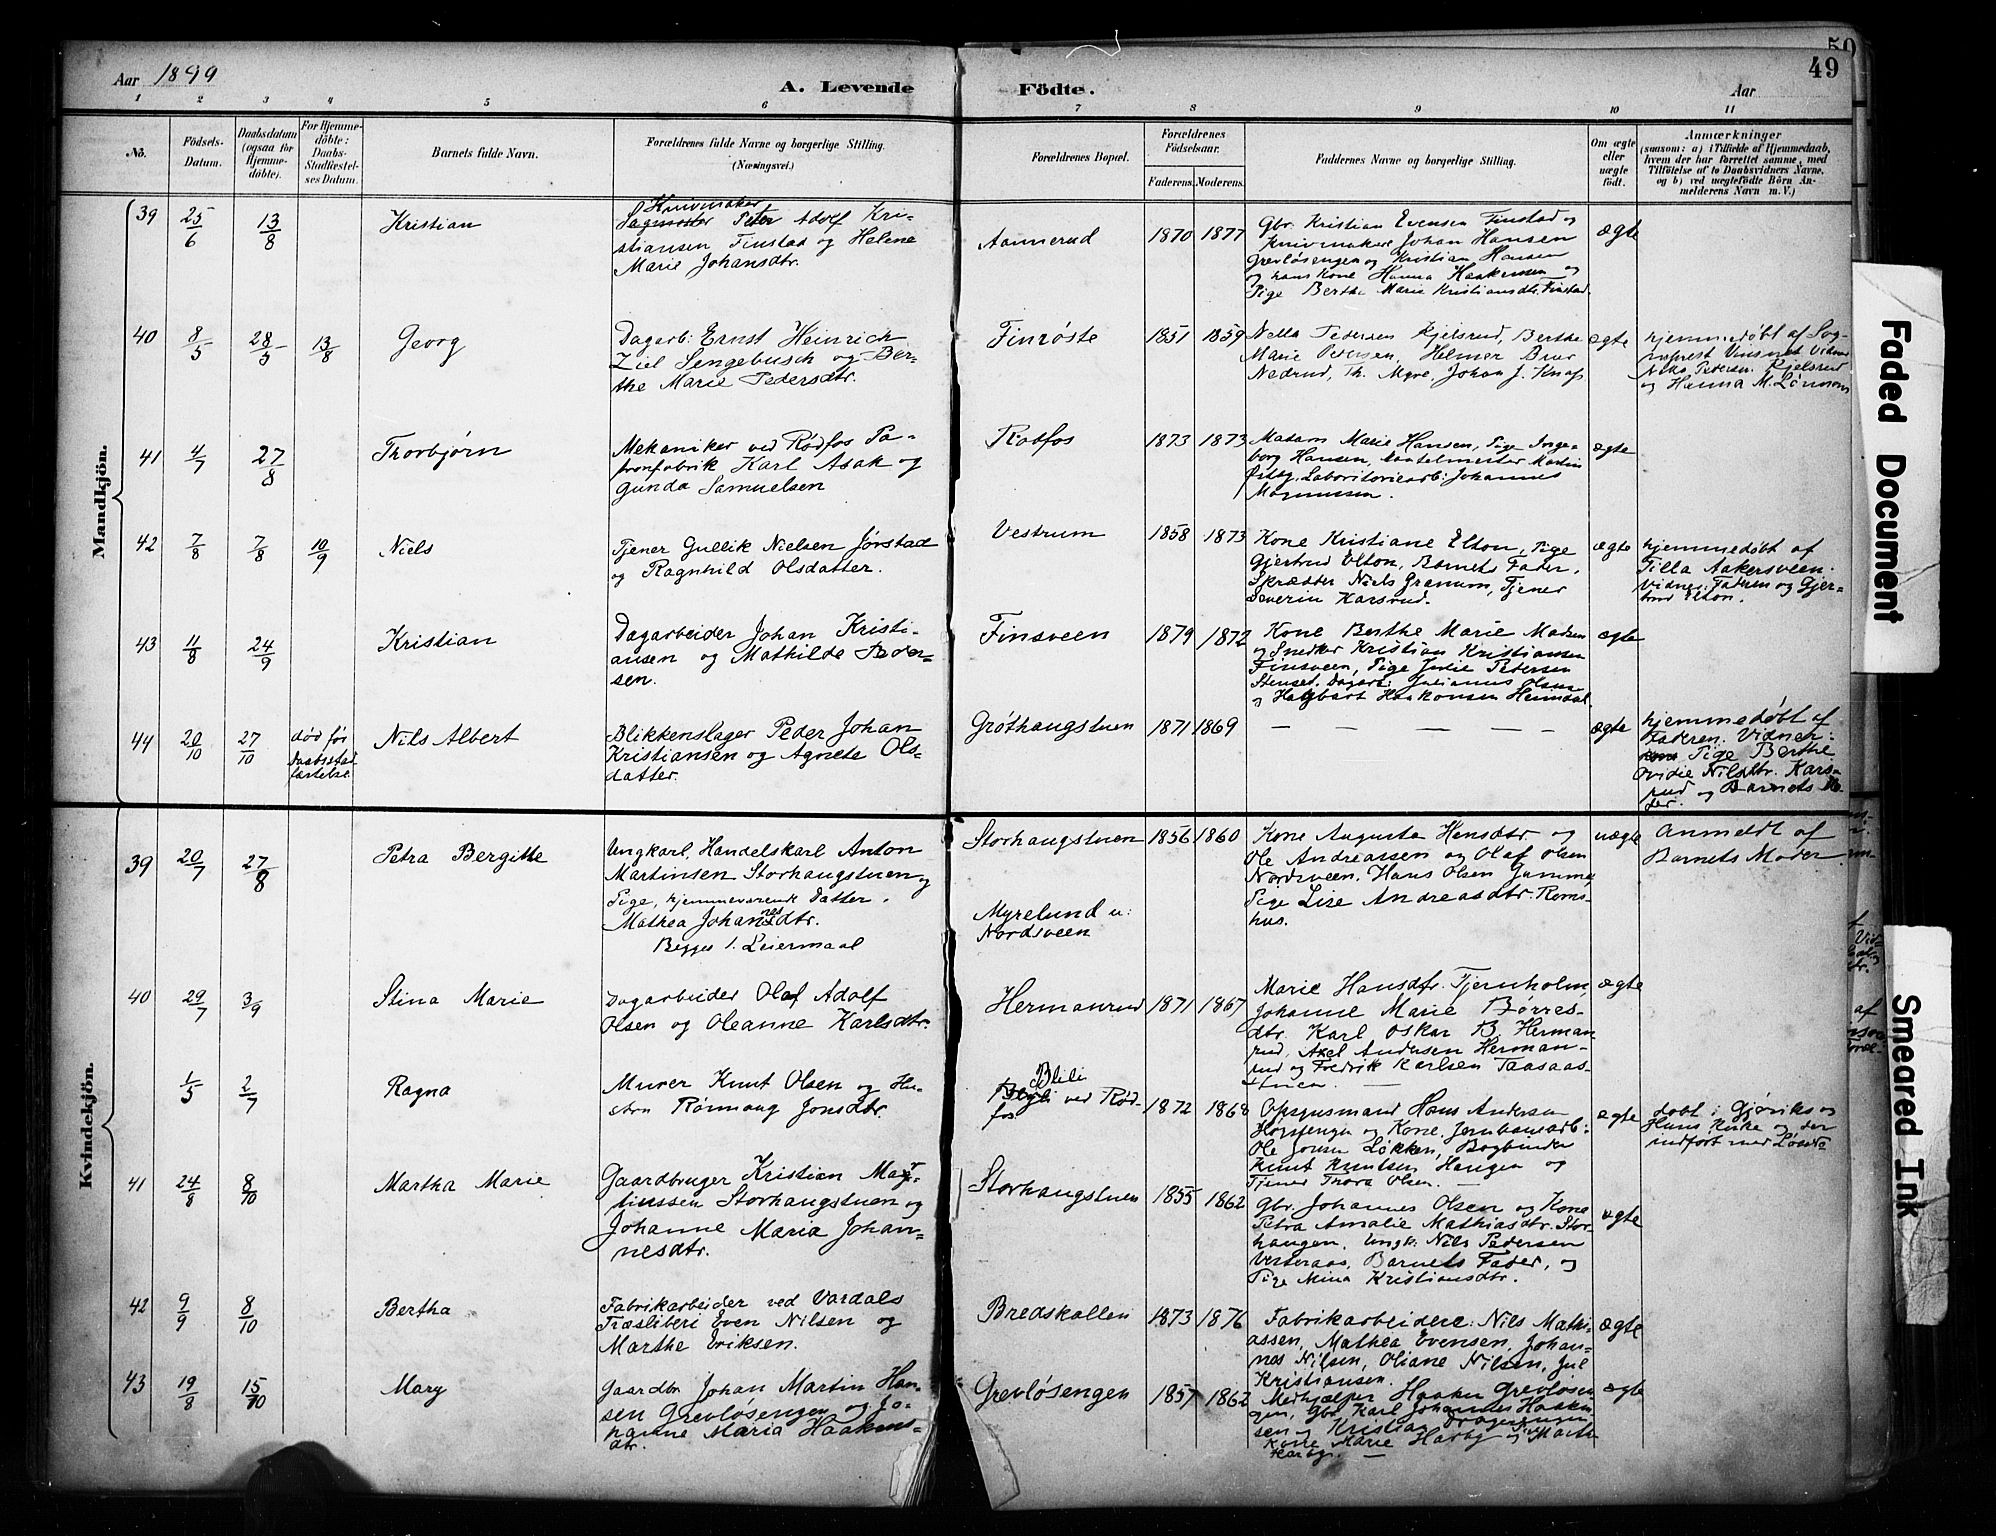 Aar 1899
A. Levende Födte.
Aar
50
49
1 2 3 4 5 6 7 8 9 10 11
No.
Födsels-
Datum.
Daabsdatum
(ogsaa for
Hjemme-
döbte).
For Hjemme-
döbte:
Daabs-
Stadfæstel-
ses Datum.
Barnets fulde Navn.
Forældrenes fulde Navne og borgerlige Stilling.
(Næringsvei.)
Forældrenes Bopæl.
Forældrenes
Födselsaar.
Faderens. Moderens.
Faddernes Navne og borgerlige Stilling.
Om ægte
eller
uægte
födt.
Anmærkninger
(saasom: a) i Tilfælde af Hjemmedaab,
hvem der har forrettet samme, med
Tilföielse af to Daabsvidners Navne,
og b) ved uægtefödte Börn An-
melderens Navn m. V.)
Mandkjön.
39
25/6
13/8
Kristian
Knivmaker
Sagmester Peter Adolf Kri-
stiansen Finstad og Helene
Marie Johansdtr.
Aannerud
1870 1877
Gbr. Kristian Evensen Finstad og
Knivmaker Johan Hansen
Grevlösengen og Kristian Hansen
og hans Kone Hanna Haakensen og
Pige Berthe Marie Kristiansdtr. Finstad.
ægte
40
8/5
28/5
13/8
Georg
Dagarb: Ernst Heinrich
Ziel Sengebusch og Ber-
the Marie Pedersdtr.
Finröste
1851 1859
Nella Pedersen Kjelsrud, Berthe
Marie Petersen, Helmer Brur
Nedrud, Th. Myre, Johan J. Knap
ægte
hjemmedøbt af Sog-
neprest Vinsnes Vidner
Nella Pedersen Kjelsrud
og Hanna M. Lönnom
41
4/7
27/8
Thorbjørn
Mekaniker ved Rødfos Pa-
tronfabrik Karl Asak og
Gunda Samuelsen
Rodfos
1873 1873
Madam Marie Hansen, Pige Inge-
borg Hansen, Martin
Østby, Laboritoriearb: Johannes
Magnussen.
ægte
42
7/8
7/8
10/9
Niels
Tjener Gullik Nielsen Jørstad
og Ragnhild Olsdatter.
Vestrum
1858 1873
Kone Kristiane Elton, Pige
Gjertrud Elton, Barnets Fader,
Skrædder Niels Granum, Tjener
Severin Karsrud.
ægte
hjemmedøbt af
Tilla Aakersveen.
Vidner: Faderen og Gjer-
trud Elton.
43
11/8
24/9
Kristian
Dagarbeider Johan Kristi-
ansen og Mathilde Peder-
sen.
Finsveen
1879 1872
Kone Berthe Marie Madsen
og Snedker Kristian Kristiansen
Finsveen, Pige Julie Petersen
Stenset. Dagarb: Julianus Olsen
og Hagbart Haakonsen Heimdal.
ægte
44
20/10
27/10
død før
Daabsstad-
fæstelse
Nils Albert
Blikkenslager Peder Johan
Kristiansen og Agnete Ols-
datter.
Gröthaugstuen
1871 1869
— — — — — —
ægte
hjemmedøbt af
Faderen. Vidner:
Pige Berthe
Ovidie Nilsdtr. Kars-
rud og Barnets Mo-
der.
Kvindekjön.
39
20/7
27/8
Petra Bergitte
Ungkarl, Handelskarl Anton
Martinsen Storhaugstuen og
Pige, hjemmeværende Datter,
Mathea Johannesdtr.
Begges 1. Leiermaal
Storhaugstuen
Myrelund u:
Nordsveen
1856 1860
Kone Augusta Hansdtr og
Ole Andreassen og Olaf Olsen
Nordsveen. Hans Olsen
Pige Lise Andreasdtr. Roms-
hus.
uægte
Anmeldt af
Barnets Moder
40
29/7
3/9
Stina Marie
Dagarbeider Olaf Adolf
Olsen og Oleanne Karlsdtr.
Hermanrud
1871 1867
Marie Hansdtr. Tjernholm,
Johanne Marie Børres-
dtr. Karl Oskar B. Herman-
rud, Axel Andersen Herman-
rud og Fredrik Karlsen Taasaas-
stuen. —
ægte
1/5
2/7
Ragna
Murer Knut Olsen og Hu-
stru Rønnaug Jonsdtr.
Blili
ved Rød-
fos
1872 1868
Opsynsmand Hans Andersen
og Kone. Jernbanearb:
Ole Jonsen Løkken, Bogbinder
Knut Knutsen Haugen og
Tjener Thora Olsen. —
ægte
døbt i Gjøviks
Kirke og der
indført med Løbe
41
24/8
8/10
Martha Marie
Gaardbruger Kristian Mar-
tinssen Storhaugstuen og
Johanne Maria Johan-
nesdtr.
Storhaugstuen
1855 1862
Gbr. Johannes Olsen og Kone
Petra Amalie Mathiasdtr. Stor-
haugen. Ungk: Nils Pedersen
Vesteraas, Barnets Fader, og
Pige Mina Kristiansdtr.
ægte
42
9/9
8/10
Bertha
Fabrikarbeider ved Vardals
Træsliberi Even Nilsen og
Marthe Eriksen.
Bredskallen
1873 1876
Fabrikarbeidere: Nils Mathi-
assen, Mathea Evensen, Johan-
nes Nilsen, Oliane Nilsen, Jul
Kristiansen.
ægte
43
19/8
15/10
Mary
Gaardbr Johan Martin Han-
sen Grevlösengen og Jo-
hanne Maria Haakens-
dtr.
Grevlösengen
1857 1862
Medhjælper Haaken Grevlösen-
gen, Gbr. Karl Johannes Haaken-
sen og Kristian Dragerengen
Kone Marie Harby og Pige Marte
Harby. —
ægte
Faded Document
Smeared Ink